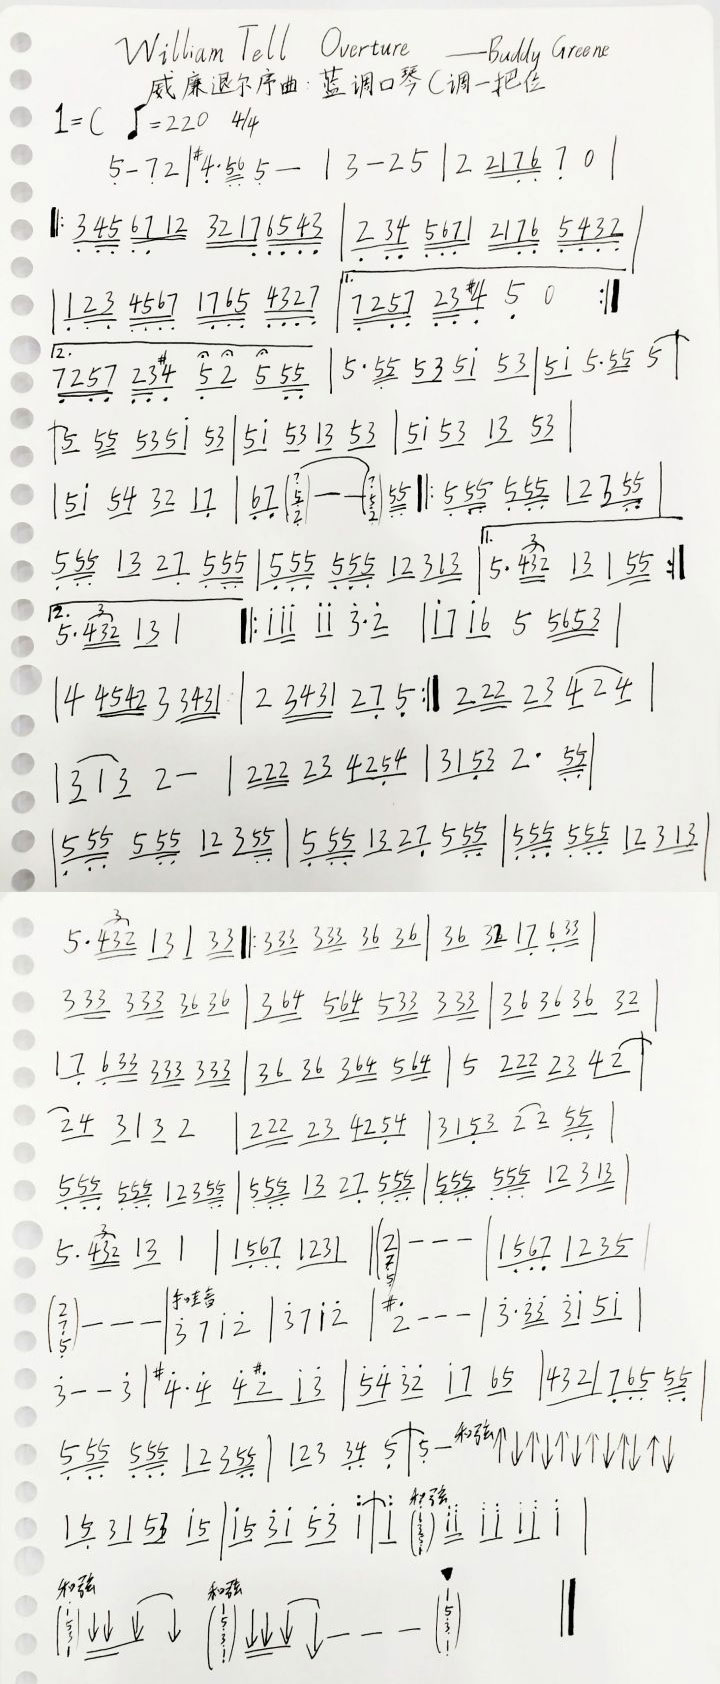 William Tell Overture ——Buddy Greene
威廉退尔序曲:蓝调口琴C调一把位
1=C ♩=220 4/4
5-72|#4·56 5— |3-25|2 2176 7 0|
‖: 345 6712 3217 6543 | 2 34 5671 2176 5432 |
|123 4567 1765 4327 |1. 7257 23#4 5 0 :‖
2. 7257 23#4 52 5 55 |5·55 53 5i 53|5i 5·55 5|
5 55 535i 53|5i 53 13 53 |5i 53 13 53|
|5i 54 32 17 |67(752)——(752)55‖: 555 555 12 355|
555 13 27 555|555 555 12 313|1. 5·432 13 1 55 :‖
2. 5·432 13 1 ‖: iii ii 3·2 |i7 i6 5 5653|
|4 4542 3 3431|2 3431 27 5:‖ 222 23 4 24|
|313 2— |222 23 4254|3153 2· 55|
|5 55 5 55 12 355|5 55 13 27 555|555 555 12 313|
5·432 13 1 33‖: 333 333 36 36|36 32 17 633|
333 333 3636|364 564 533 333|36 36 36 32|
17 633 333 333|36 36 364 564|5 222 23 42|
24 313 2 |222 23 4254|3153 22 55|
555 555 12355|555 13 27 555|555 555 12 313|
5·432 13 1 |1567 1231 ‖(275)---|1567 1235|
(275)---|手哇音 37i2 |37i2 |#2---|3·33 3i 5i|
3--3|#4·4 4#2 i3|54 32 i7 65|4321 765 55|
555 555 12355|123 34 5|5- 和弦↑↓↑↓↑↓↑↓↑↓↑↓
15 31 53 i5|i5 3i 53 i|i 和弦 ii ii ii i |
和弦 ↓↓ ↓ ↓ 和弦 (1531)↓↓↓ ↓--- (1531) ‖